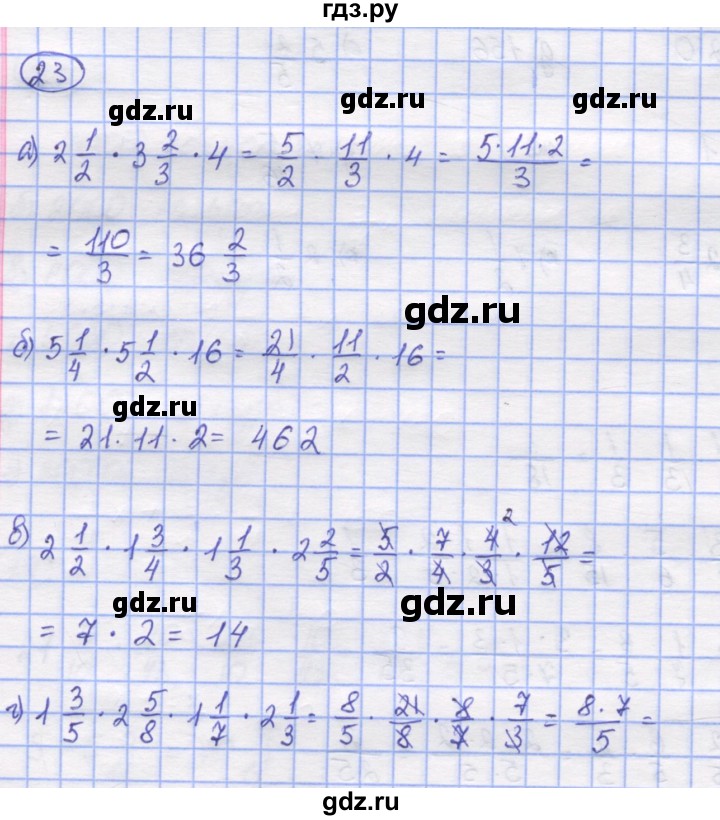 гдз.ру
23
gdz.ru gdz.ru gdz.ru
а) 2 1/2 · 3 2/3 · 4 = 5/2 · 11/3 · 4 = 5·11·2/3 =
= 110/3 = 36 2/3
gdz.ru
б) 5 1/4 · 5 1/2 · 16 = 21/4 · 11/2 · 16 =
gdz.ru
= 21·11·2 = 462
в) 2 1/2 · 1 3/4 · 1 1/3 · 2 2/5 = 5/2 · 7/4 · 4/3 ² · 12/5 =
gdz.ru gdz.ru
= 7 · 2 = 14
г) 1 3/5 · 2 5/8 · 1 1/7 · 2 1/3 = 8/5 · 21/8 · 8/7 · 7/3 = 8·7/5 =
gdz.ru
gdz.ru